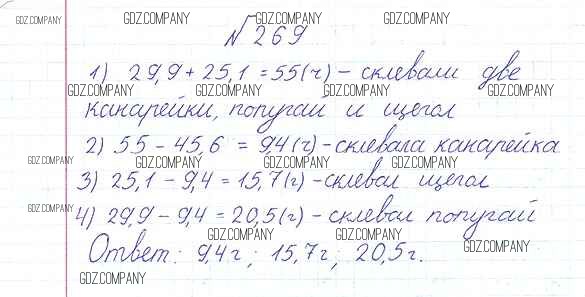 GDZ.COMPANY GDZ.COMPANY GDZ.COMPANY GDZ.COMPANY
№269
1) 29,9 + 25,1 = 55(г) – склевали две
GDZ.COMPANY GDZ.COMPANY GDZ.COMPANY GDZ.COMPANY
канарейки, попугай и щегол
2) 55 – 45,6 = 9,4(г) – склевала канарейка
GDZ.COMPANY GDZ.COMPANY GDZ.COMPANY GDZ.COMPANY
3) 25,1 – 9,4 = 15,7(г) – склевал щегол
GDZ.COMPANY GDZ.COMPANY GDZ.COMPANY GDZ.COMPANY
4) 29,9 – 9,4 = 20,5(г) – склевал попугай
GDZ.COMPANY GDZ.COMPANY GDZ.COMPANY
Ответ: 9,4г; 15,7г; 20,5г.
GDZ.COMPANY